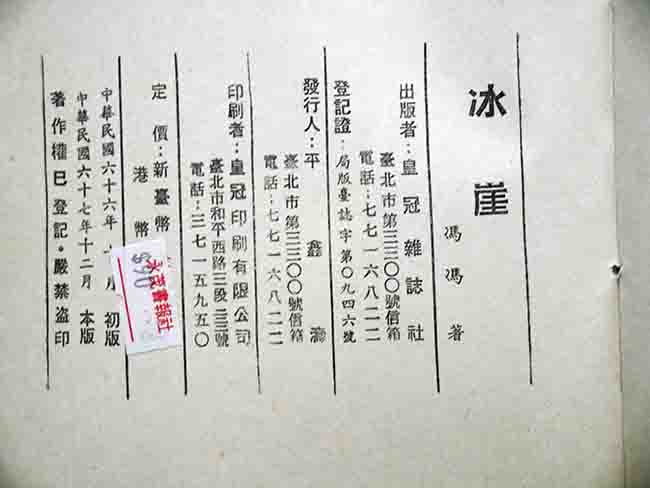 冰崖
馮馮 著
出版者：皇冠雜誌社
臺北市第三三〇〇號信箱
電話：七七一六八二二
登記證：局版臺誌字第〇九四六號
發行人：平鑫濤
臺北市第三三〇〇號信箱
電話：七七一六八二二
印刷者：皇冠印刷有限公司
臺北市和平西路三段二三號
電話：三七一五九五〇
定價：新臺幣
港幣
中華民國六十六年 月 初版
中華民國六十七年十二月 本版
著作權已登記・嚴禁盜印
永茂書報社